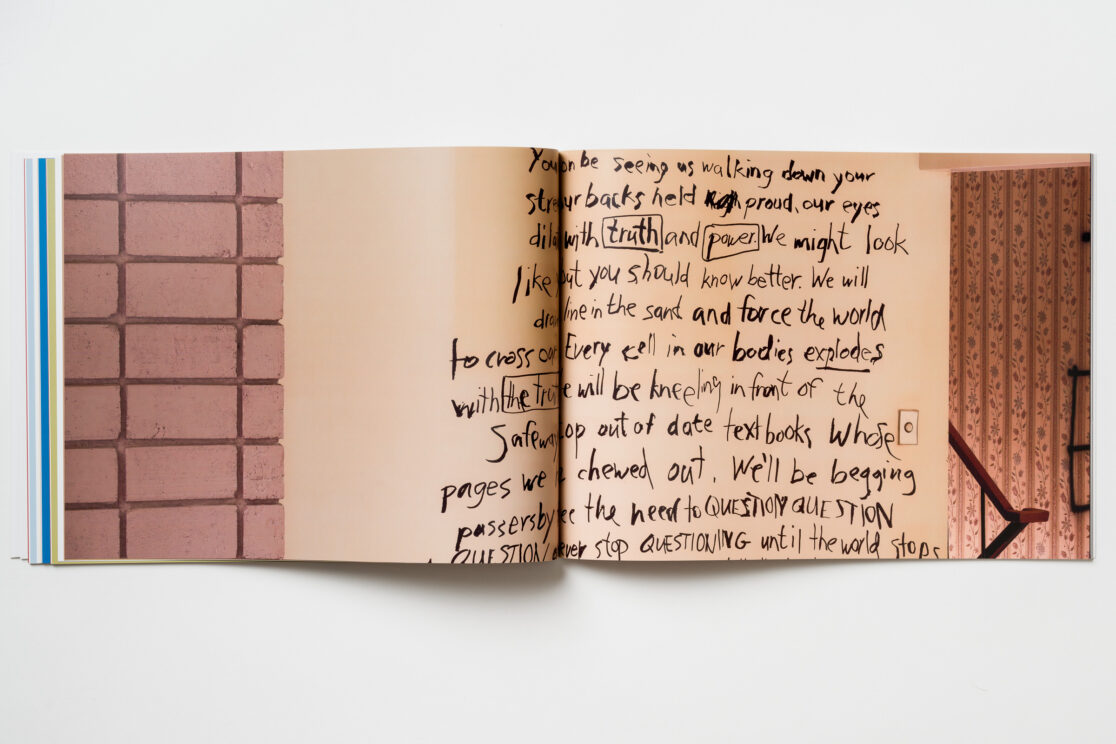 be seeing us walking down your
backs held proud, our eyes
with truth and power. We might look
like you should know better. We will
line in the sand and force the world
to cross our Every cell in our bodies explodes
with the will be kneeling in front of the
Safeway out of date textbooks whose
pages we chewed out. We'll be begging
passersby the need to QUESTION QUESTION
QUESTION stop QUESTIONING until the world stops